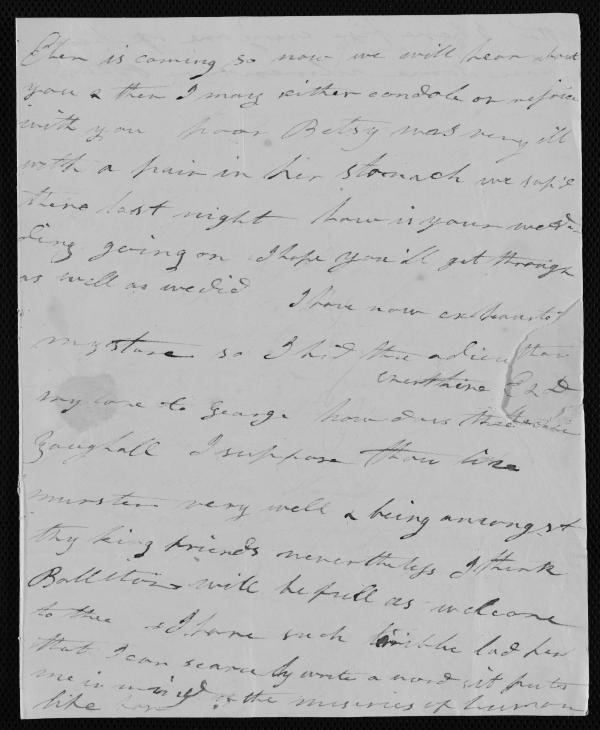 Eben is coming so now we will hear about
you & then I may either condole or rejoice
with you poor Betsy was very ill
with a pain in her stomach we sup'd
there last night how is your wed-
ding going on I hope you'll get through
as well as we did I have now exhausted
my store so I bid thee adieu thou
ever thine E & D
my love to George how does thee
Youghall I suppose thou like
munster very well & being amongst
thy king friends nevertheless I think
Ballitore will be full as welcome
to thee & I have such terrible bad pen
that I can scarcely write a word it puts
me in mind of the miseries of human
like